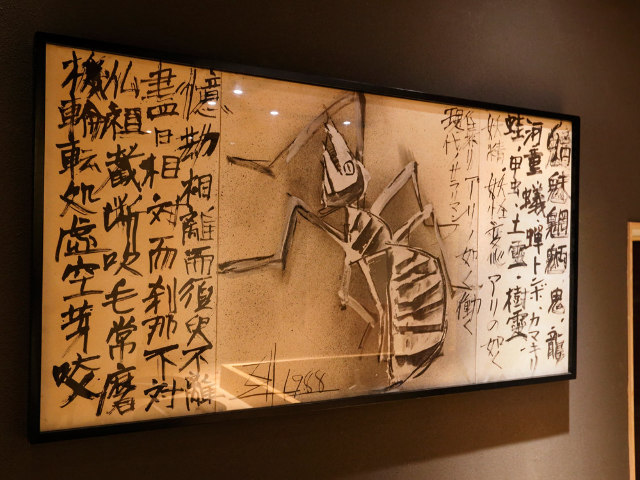 魑魅魍魎・鬼・龍
河童 蟻 蟬 トンボ、カマキリ
蛙・甲虫・土霊・樹霊
妖精・妖怪変化 アリの如く
集リ アリノ如く働く
現代ノサラリーマン
1988
憶劫相離而須臾不離
盡日相対而刹那不対
仏祖截断吹毛常磨
機輪転処虚空芽咬